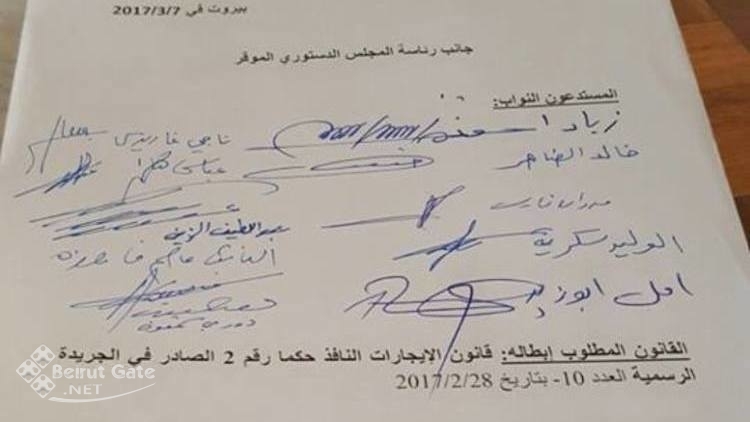 بيروت في 2017/3/7
جانب رئاسة المجلس الدستوري الموقر
المستدعون النواب:
زياد اسود
ناجي غاريوس
خالد الضاهر
عباس هاشم
مروان فارس
عبد اللطيف الزين
الوليد سكرية
النائب قاسم هاشم
امل ابو زيد
القانون المطلوب إبطاله: قانون الإيجارات النافذ حكما رقم 2 الصادر في الجريدة
الرسمية العدد 10- بتاريخ 2017/2/28
Beirut Gate
.NET